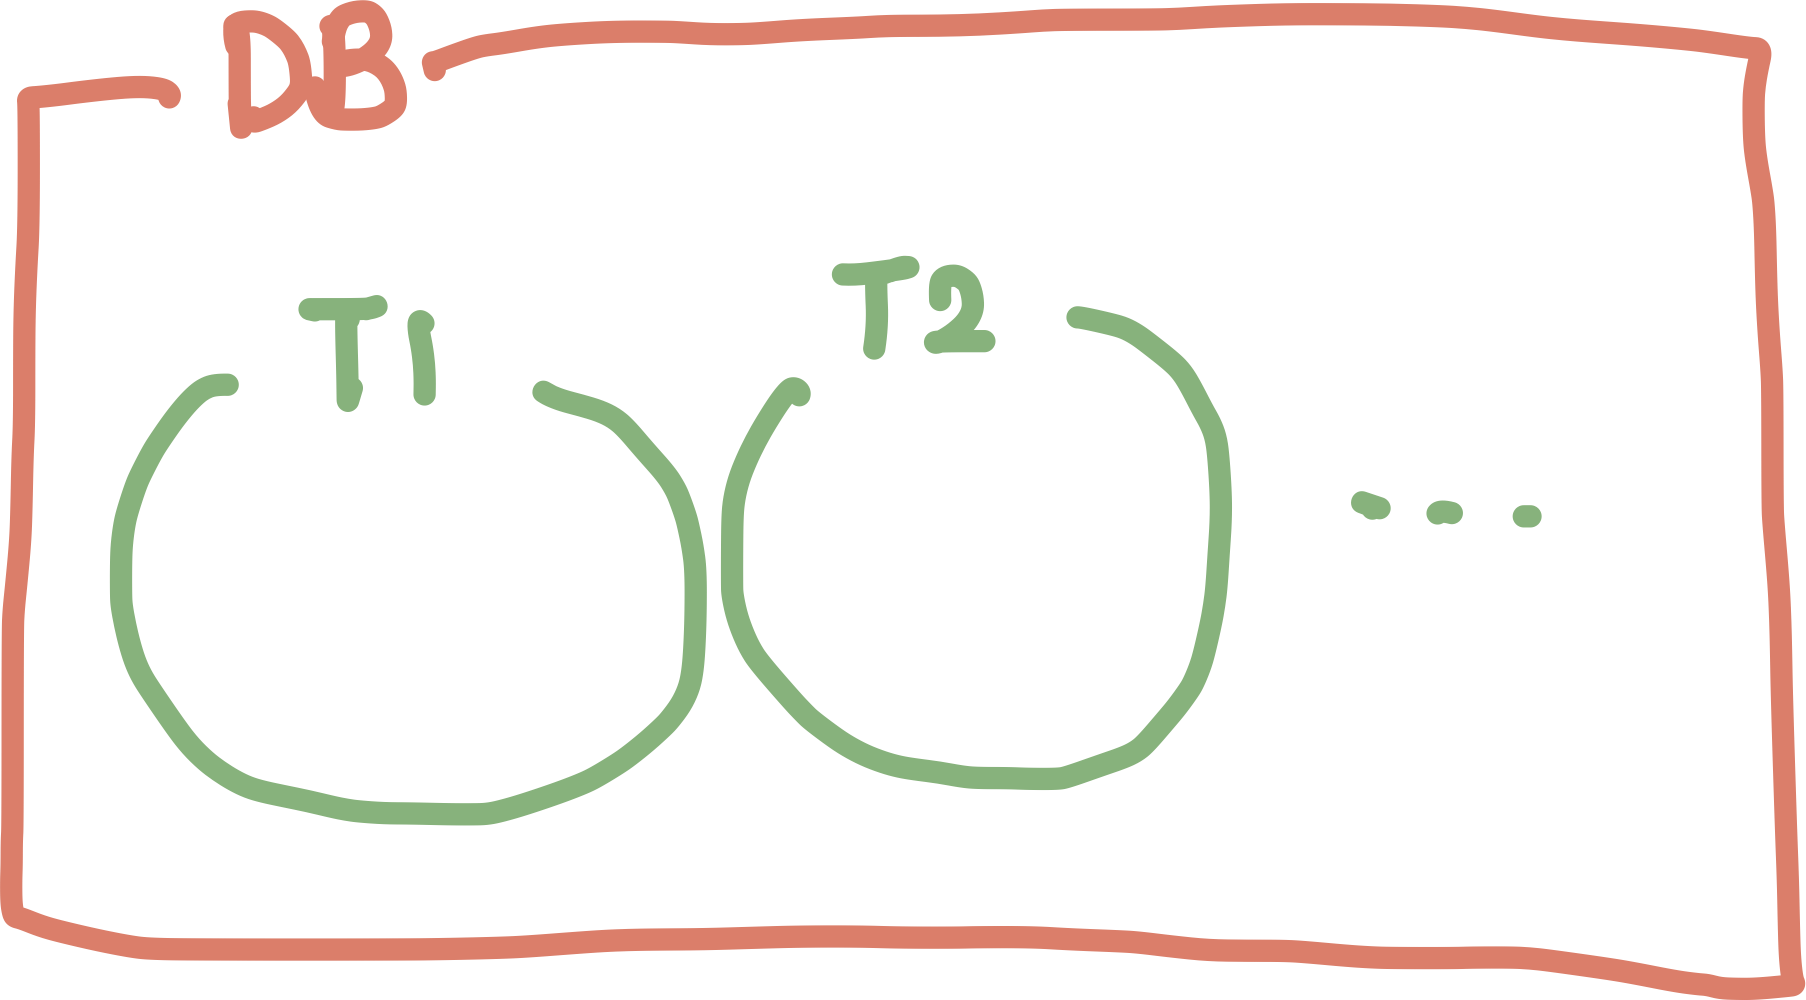 DB
T1
T2
....